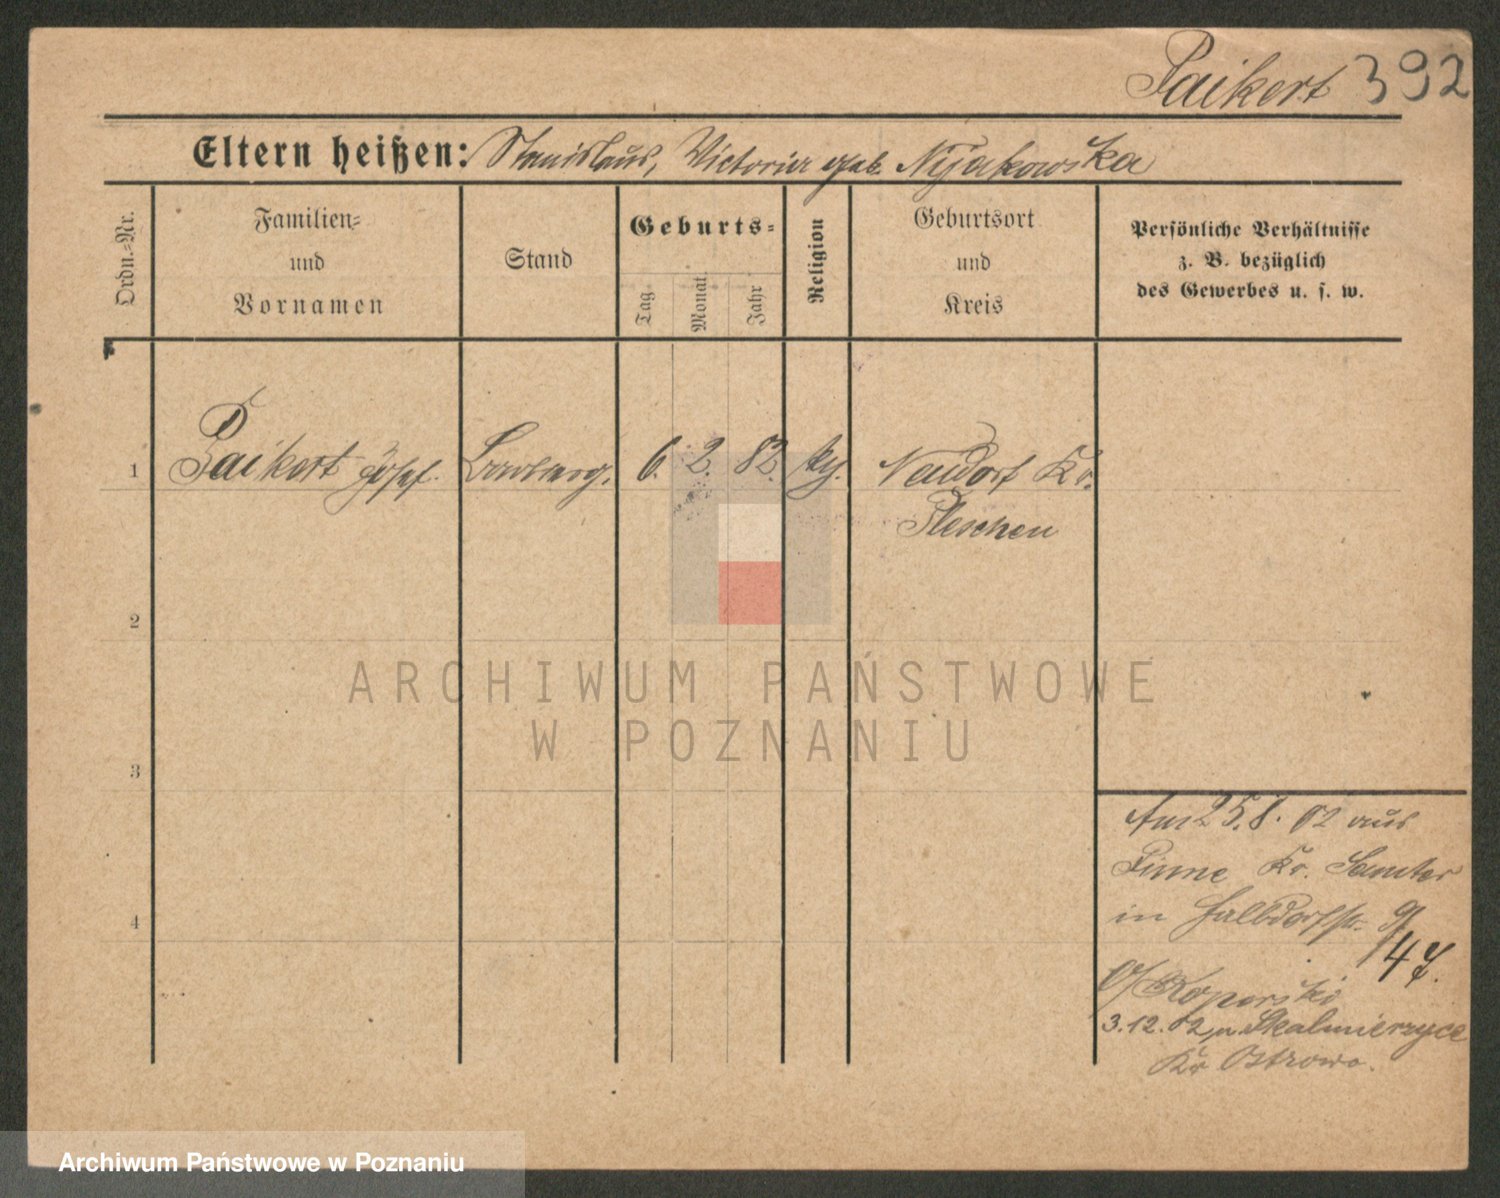 Paikert 392
Eltern heißen: Stanislaus, Victoria geb. Nyjakowska
Ordn.-Nr.
Familien-
und
Vornamen
Stand
Geburts-
Tag
Monat
Jahr
Religion
Geburtsort
und
Kreis
Persönliche Verhältnisse
z. B. bezüglich
des Gewerbes u. s. w.
1 Paikert Josef. 6. 2. 82. Neudorf Kr.
Pleschen
2
ARCHIWUM PAŃSTWOWE
W POZNANIU
3
Am 25.8. 02 aus
Pinne Kr. Samter
in Halbdorfstr. 9
14 I.
b/ Koperski
3.12. 02 n. Skalmierzyce
Kr Ostrowo.
4
Archiwum Państwowe w Poznaniu